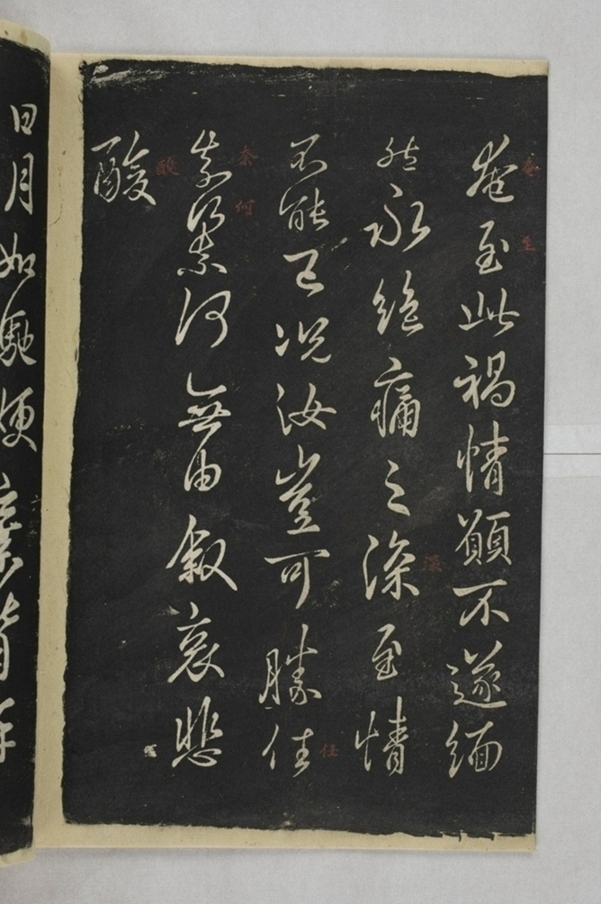 奄至此禍情願不遂緬
然永絕痛之深至情
不能已況汝豈可勝任
奈何奈何無由叙哀悲
酸
奄
至
深
任
奈何
酸
日月如馳㛐棄背